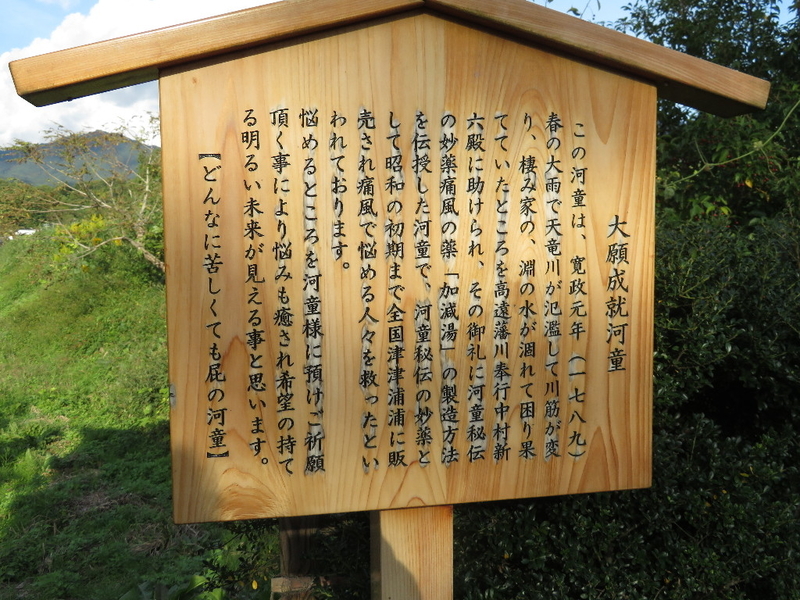 大願成就河童
この河童は、寛政元年（一七八九）
春の大雨で天竜川が氾濫して川筋が変
り、棲み家の、淵の水が涸れて困り果
てていたところを高遠藩川奉行中村新
六殿に助けられ、その御礼に河童秘伝
の妙薬痛風の薬「加減湯」の製造方法
を伝授した河童で、河童秘伝の妙薬と
して昭和の初期まで全国津津浦浦に販
売され痛風で悩める人々を救ったとい
われております。
悩めるところを河童様に預けご祈願
頂く事により悩みも癒され希望の持て
る明るい未来が見える事と思います。
【どんなに苦しくても屁の河童】